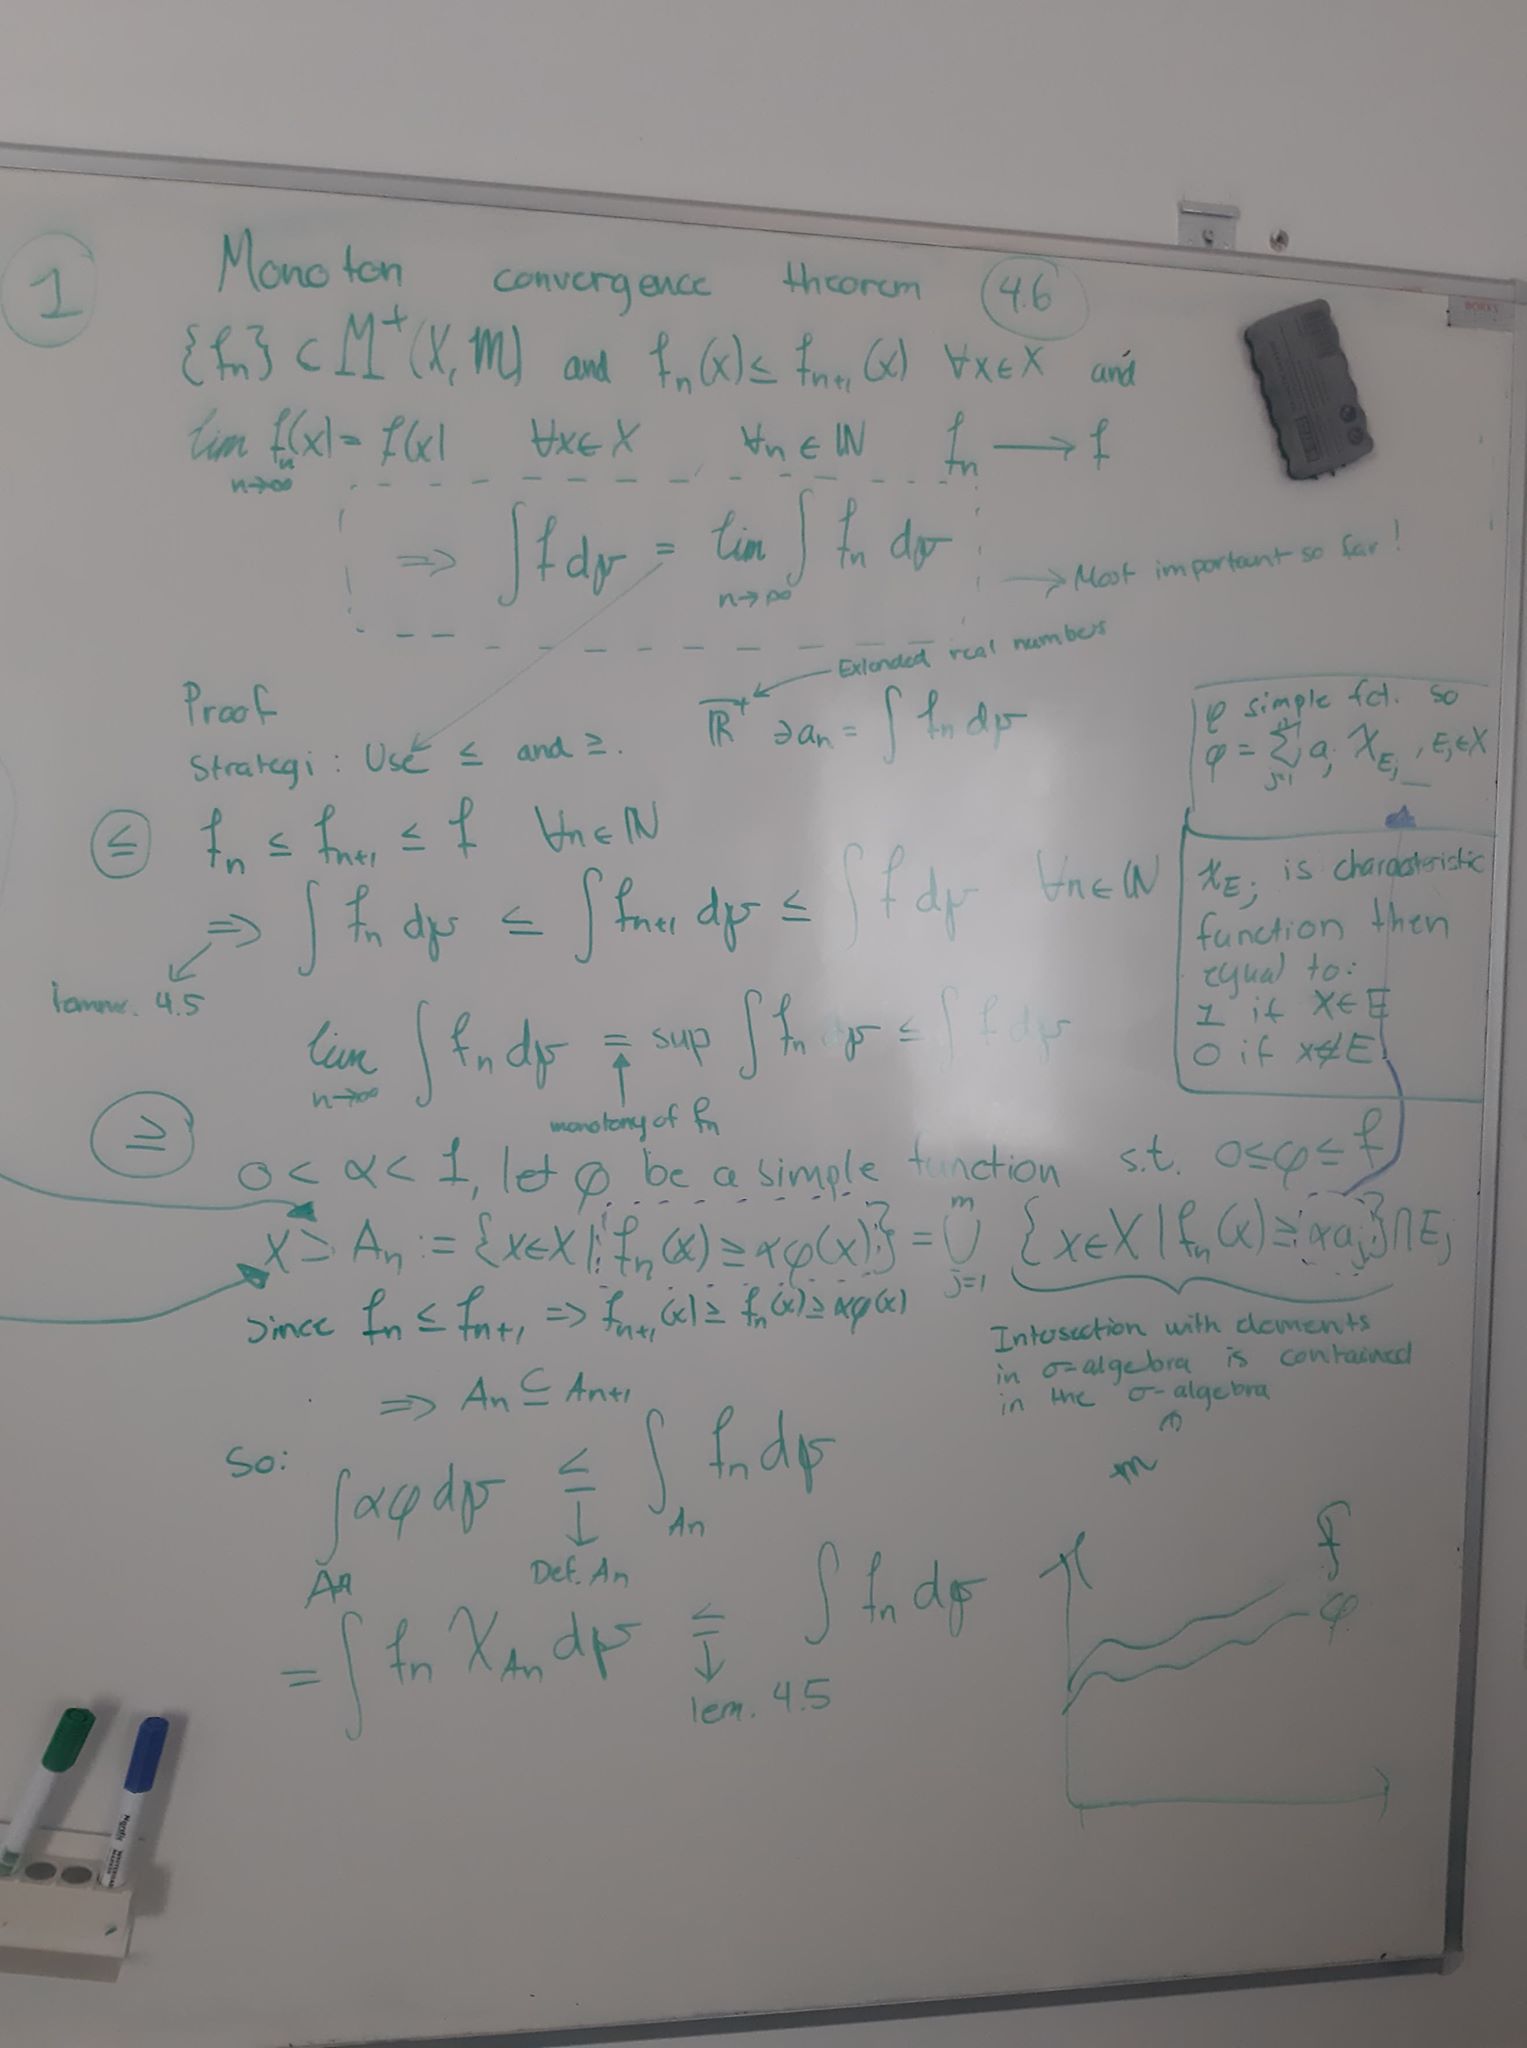 1
Monoton convergence theorem 4.6
{fn} ⊂ M⁺(X, m) and fn(x) ≤ fn+1(x) ∀x∈X and
lim n→∞ fn(x) = f(x) ∀x∈X ∀n∈ℕ fn → f
⇒ ∫ f dμ = lim n→∞ ∫ fn dμ
→ Most important so far!
Extended real numbers
Proof
Strategi: Use ≤ and ≥. ℝ̄⁺ ∋ an = ∫ fn dμ
φ simple fct. so
φ = Σ j=1 aj χEj, Ej∈X
≤ fn ≤ fn+1 ≤ f ∀n∈ℕ
⇒ ∫ fn dμ ≤ ∫ fn+1 dμ ≤ ∫ f dμ ∀n∈ℕ
4.5
χEj is characteristic
function then
equal to:
1 if x∈E
0 if x∉E
lim n→∞ ∫ fn dμ = sup ∫ fn dμ ≤ ∫ f dμ
monotony of fn
≥
0 < α < 1, let φ be a simple function s.t. 0≤φ≤f
X ⊇ An := {x∈X | fn(x) ≥ αφ(x)} = ⋃ j=1 m {x∈X | fn(x) ≥ αaj} ∩ Ej
Since fn ≤ fn+1 ⇒ fn+1(x) ≥ fn(x) ≥ αφ(x)
Intersection with elements
in σ-algebra is contained
in the σ-algebra
m
⇒ An ⊆ An+1
So:
∫An αφ dμ ≤ ∫An fn dμ
Def. An
= ∫ fn χAn dμ ≤ ∫ fn dμ
lem. 4.5
f
φ